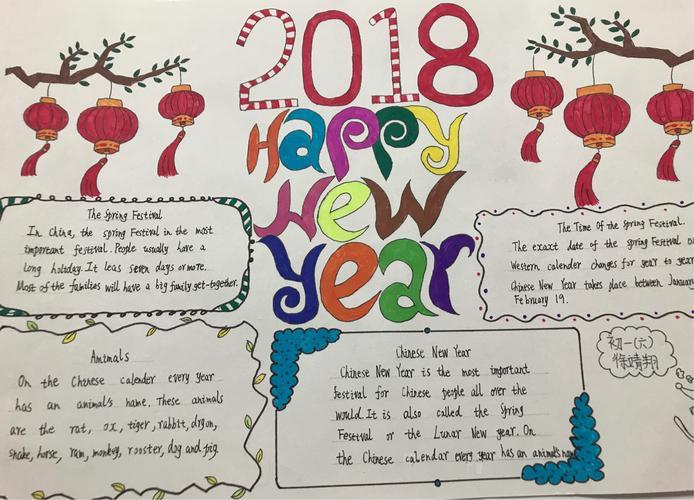 2018
Happy
New
Year
The Spring Festival
In China, the spring Festival in the most
important festival. People usually have a
long holiday. It leas seven days or more.
Most of the families will have a big family get-together.
The Time Of the Spring Festival.
The exaxt date of the spring Festival
Western calender changes for year to year
Chinese New Year takes place between January
February 19.
Amimals
On the Chinese calender every year
has an animal's name. These animals
are the rat, ox, tiger, rabbit, drgon,
snake, horse, ram, monkey, rooster, dog and pig.
Chinese New Year
Chinese New Year is the most important
festival for Chinese people all over the
would. It is also called the Spring
Festival or the Lunar New year. On
the Chinese calendar every year has an animal's nam
初一(六)
徐靖翔